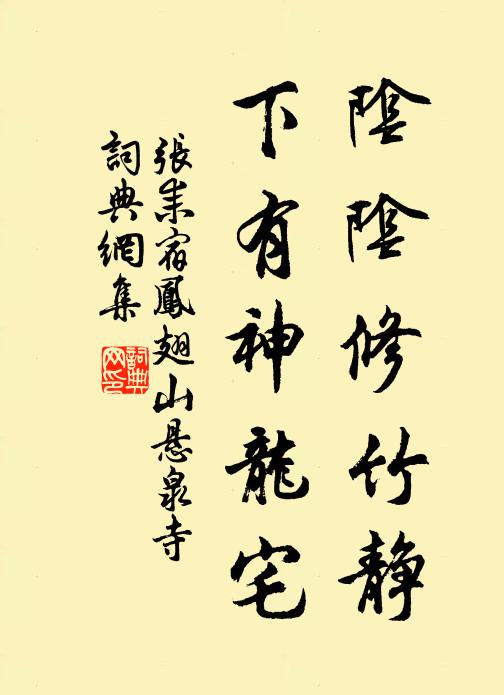 陰陰修竹静
下有神龍宅
張耒宿鳳翅山悬泉寺
詞典網集
詞典
网印